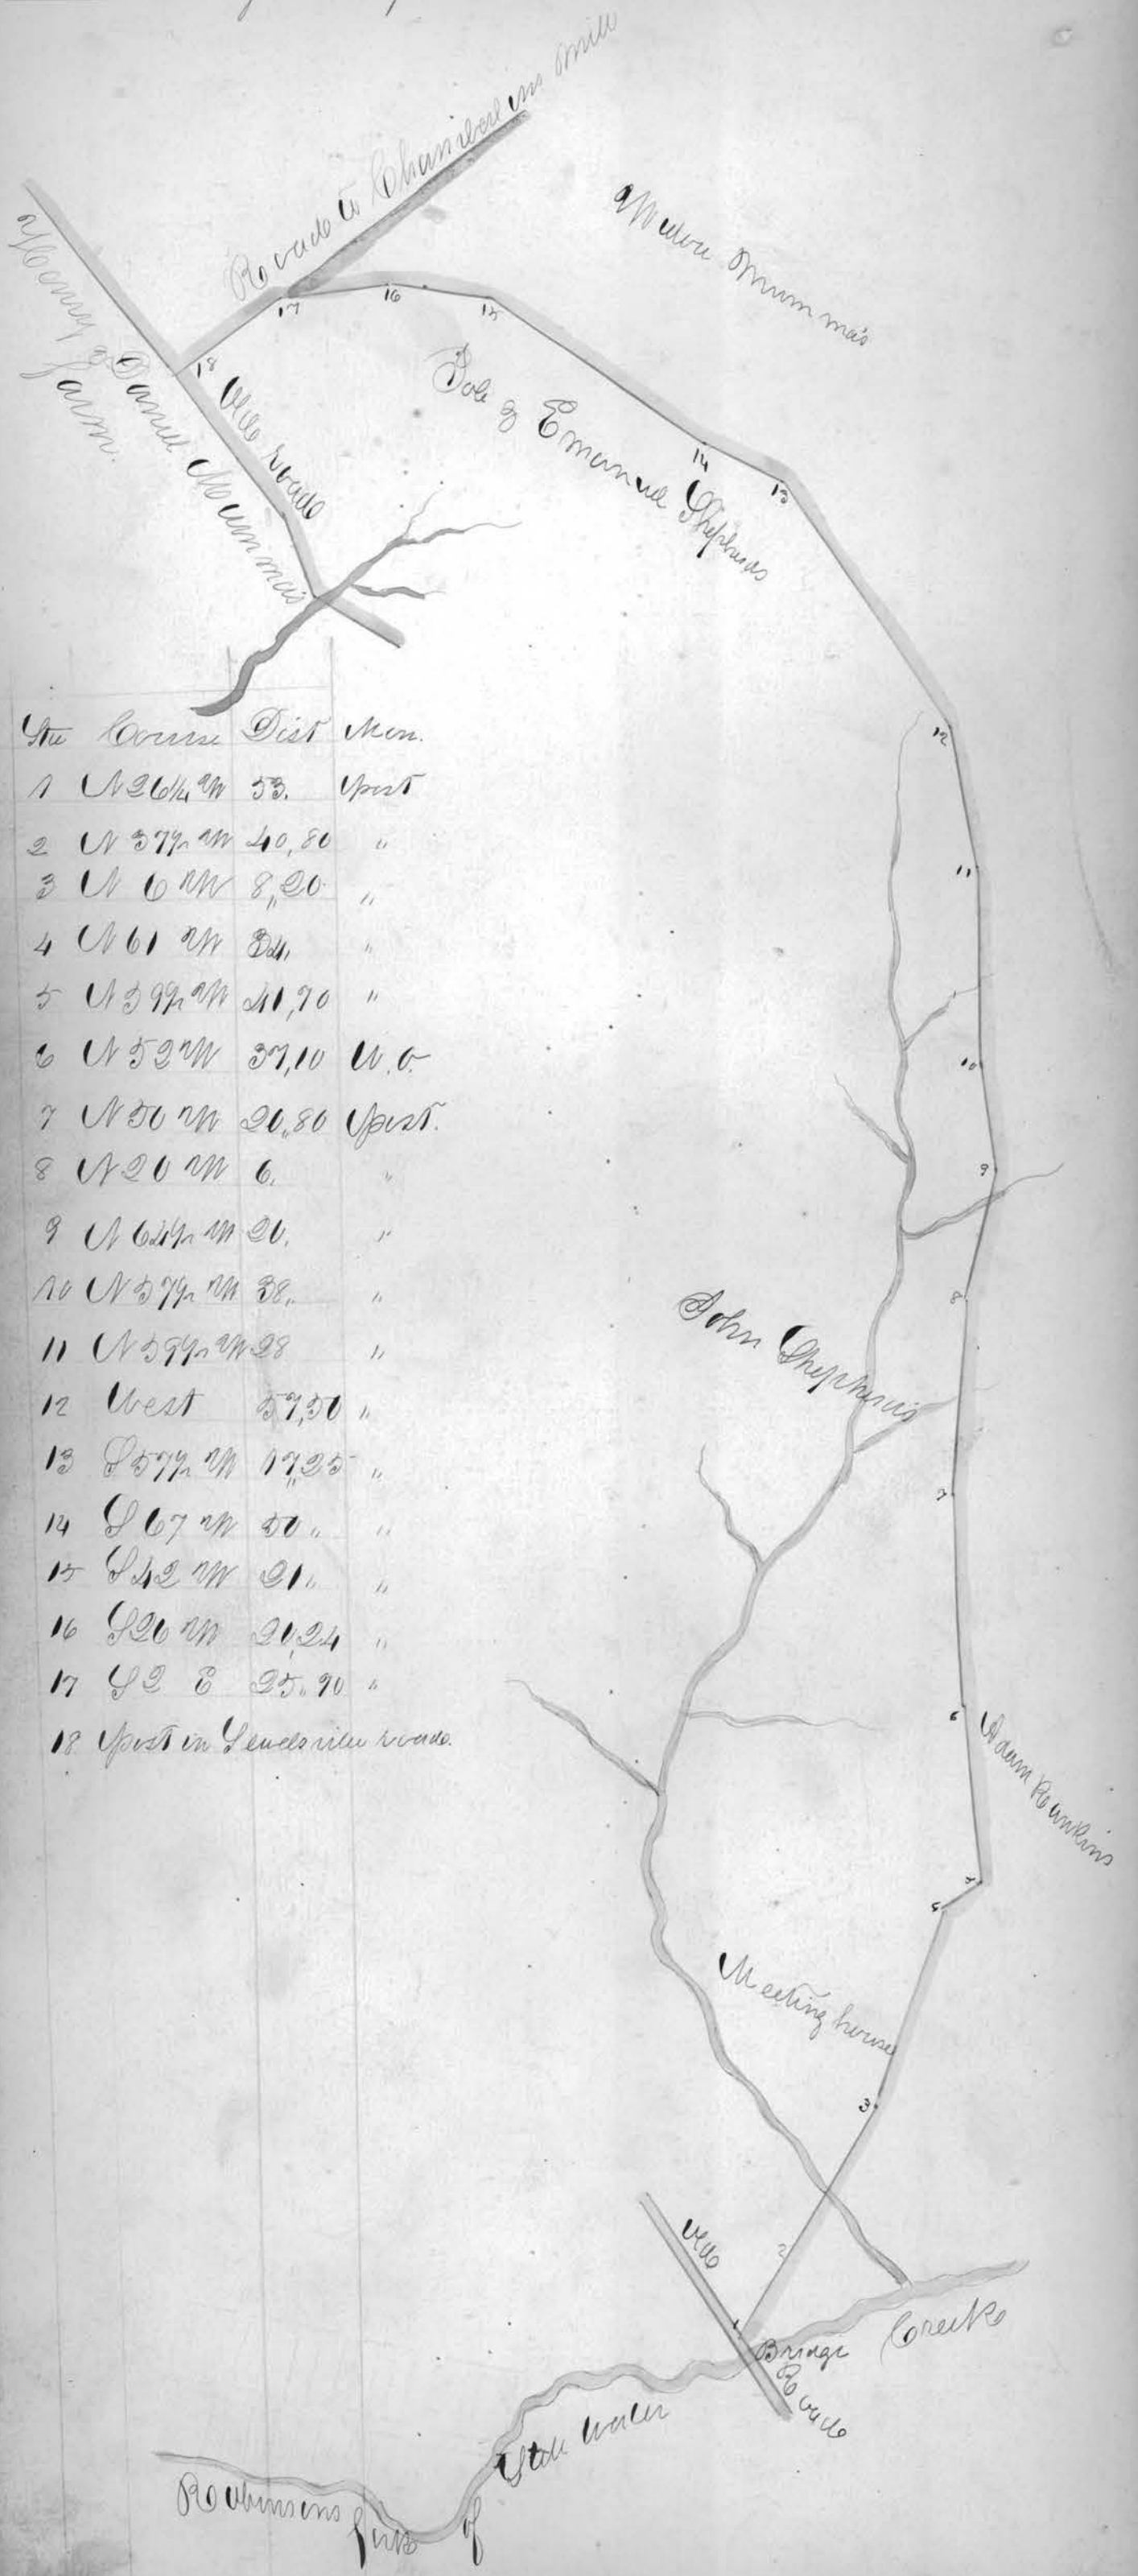 Roade to Chamberlins Mill
Henry & Daniel Mummas
farm.
Old roade
Mummas
& Emanuel Shepherds
18
17
16
15
14
13
12
11
10
9
8
7
6
5
4
3
2
1
Sta Course Dist Mon.
1 N 26¼ W 53. Post
2 N 37½ W 40,80 "
3 N 6 W 8,20 "
4 N 61 W 34, "
5 N 59½ W 41,70 "
6 N 52 W 37,10 W.O.
7 N 50 W 20,80 Post.
8 N 20 W 6. "
9 N 64½ W 20. "
10 N 57½ W 38. "
11 N 59½ W 28 "
12 West 57,50 "
13 S 57½ W 17,25 "
14 S 67 W 50 "
15 S 42 W 21 "
16 S 26 W 20,24 "
17 S 2 E 25.90 "
18 Post in roade.
John Shepherds
Adam Rankins
Meeting house
Old
Bridge
Roade
Creek
Still Water
Robinsons fork of